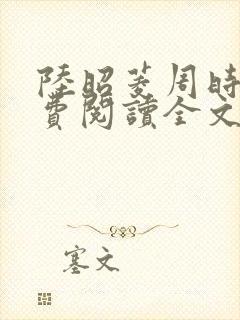 陸昭菱周時
費閱讀全文
塞文